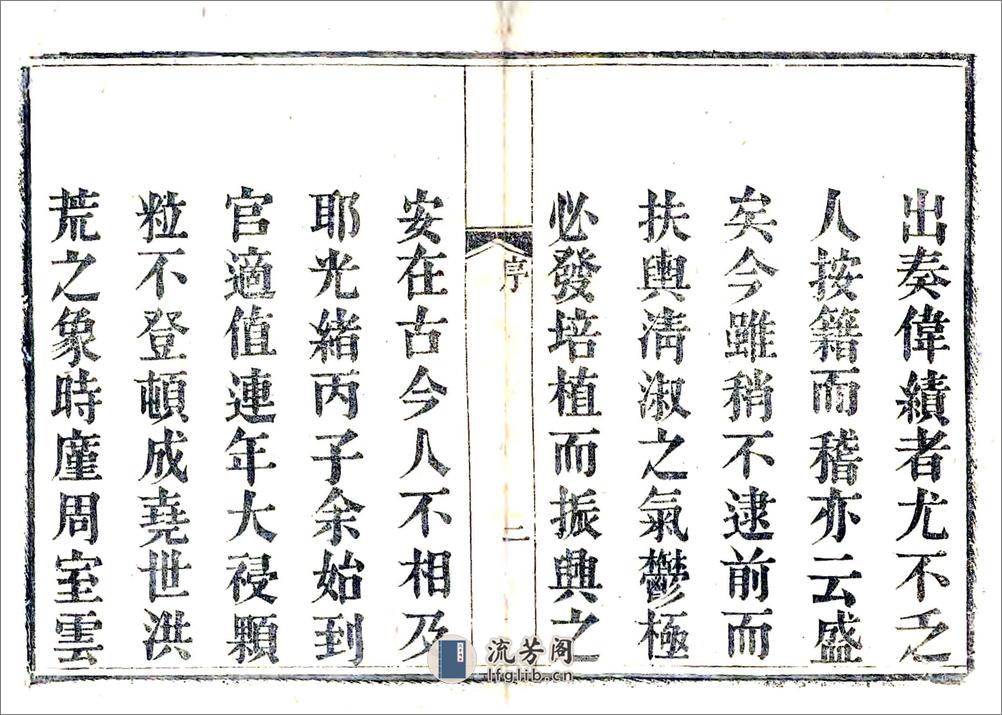 出奏偉績者尤不乏
人按籍而稽亦云盛
矣今雖稍不逮前而
扶輿淸淑之氣鬱極
必發培植而振興之
序
二
安在古今人不相及
耶光緒丙子余始到
官適值連年大祲顆
粒不登頓成堯世洪
荒之象時廑周室雲
流芳阁
lfglib.cn